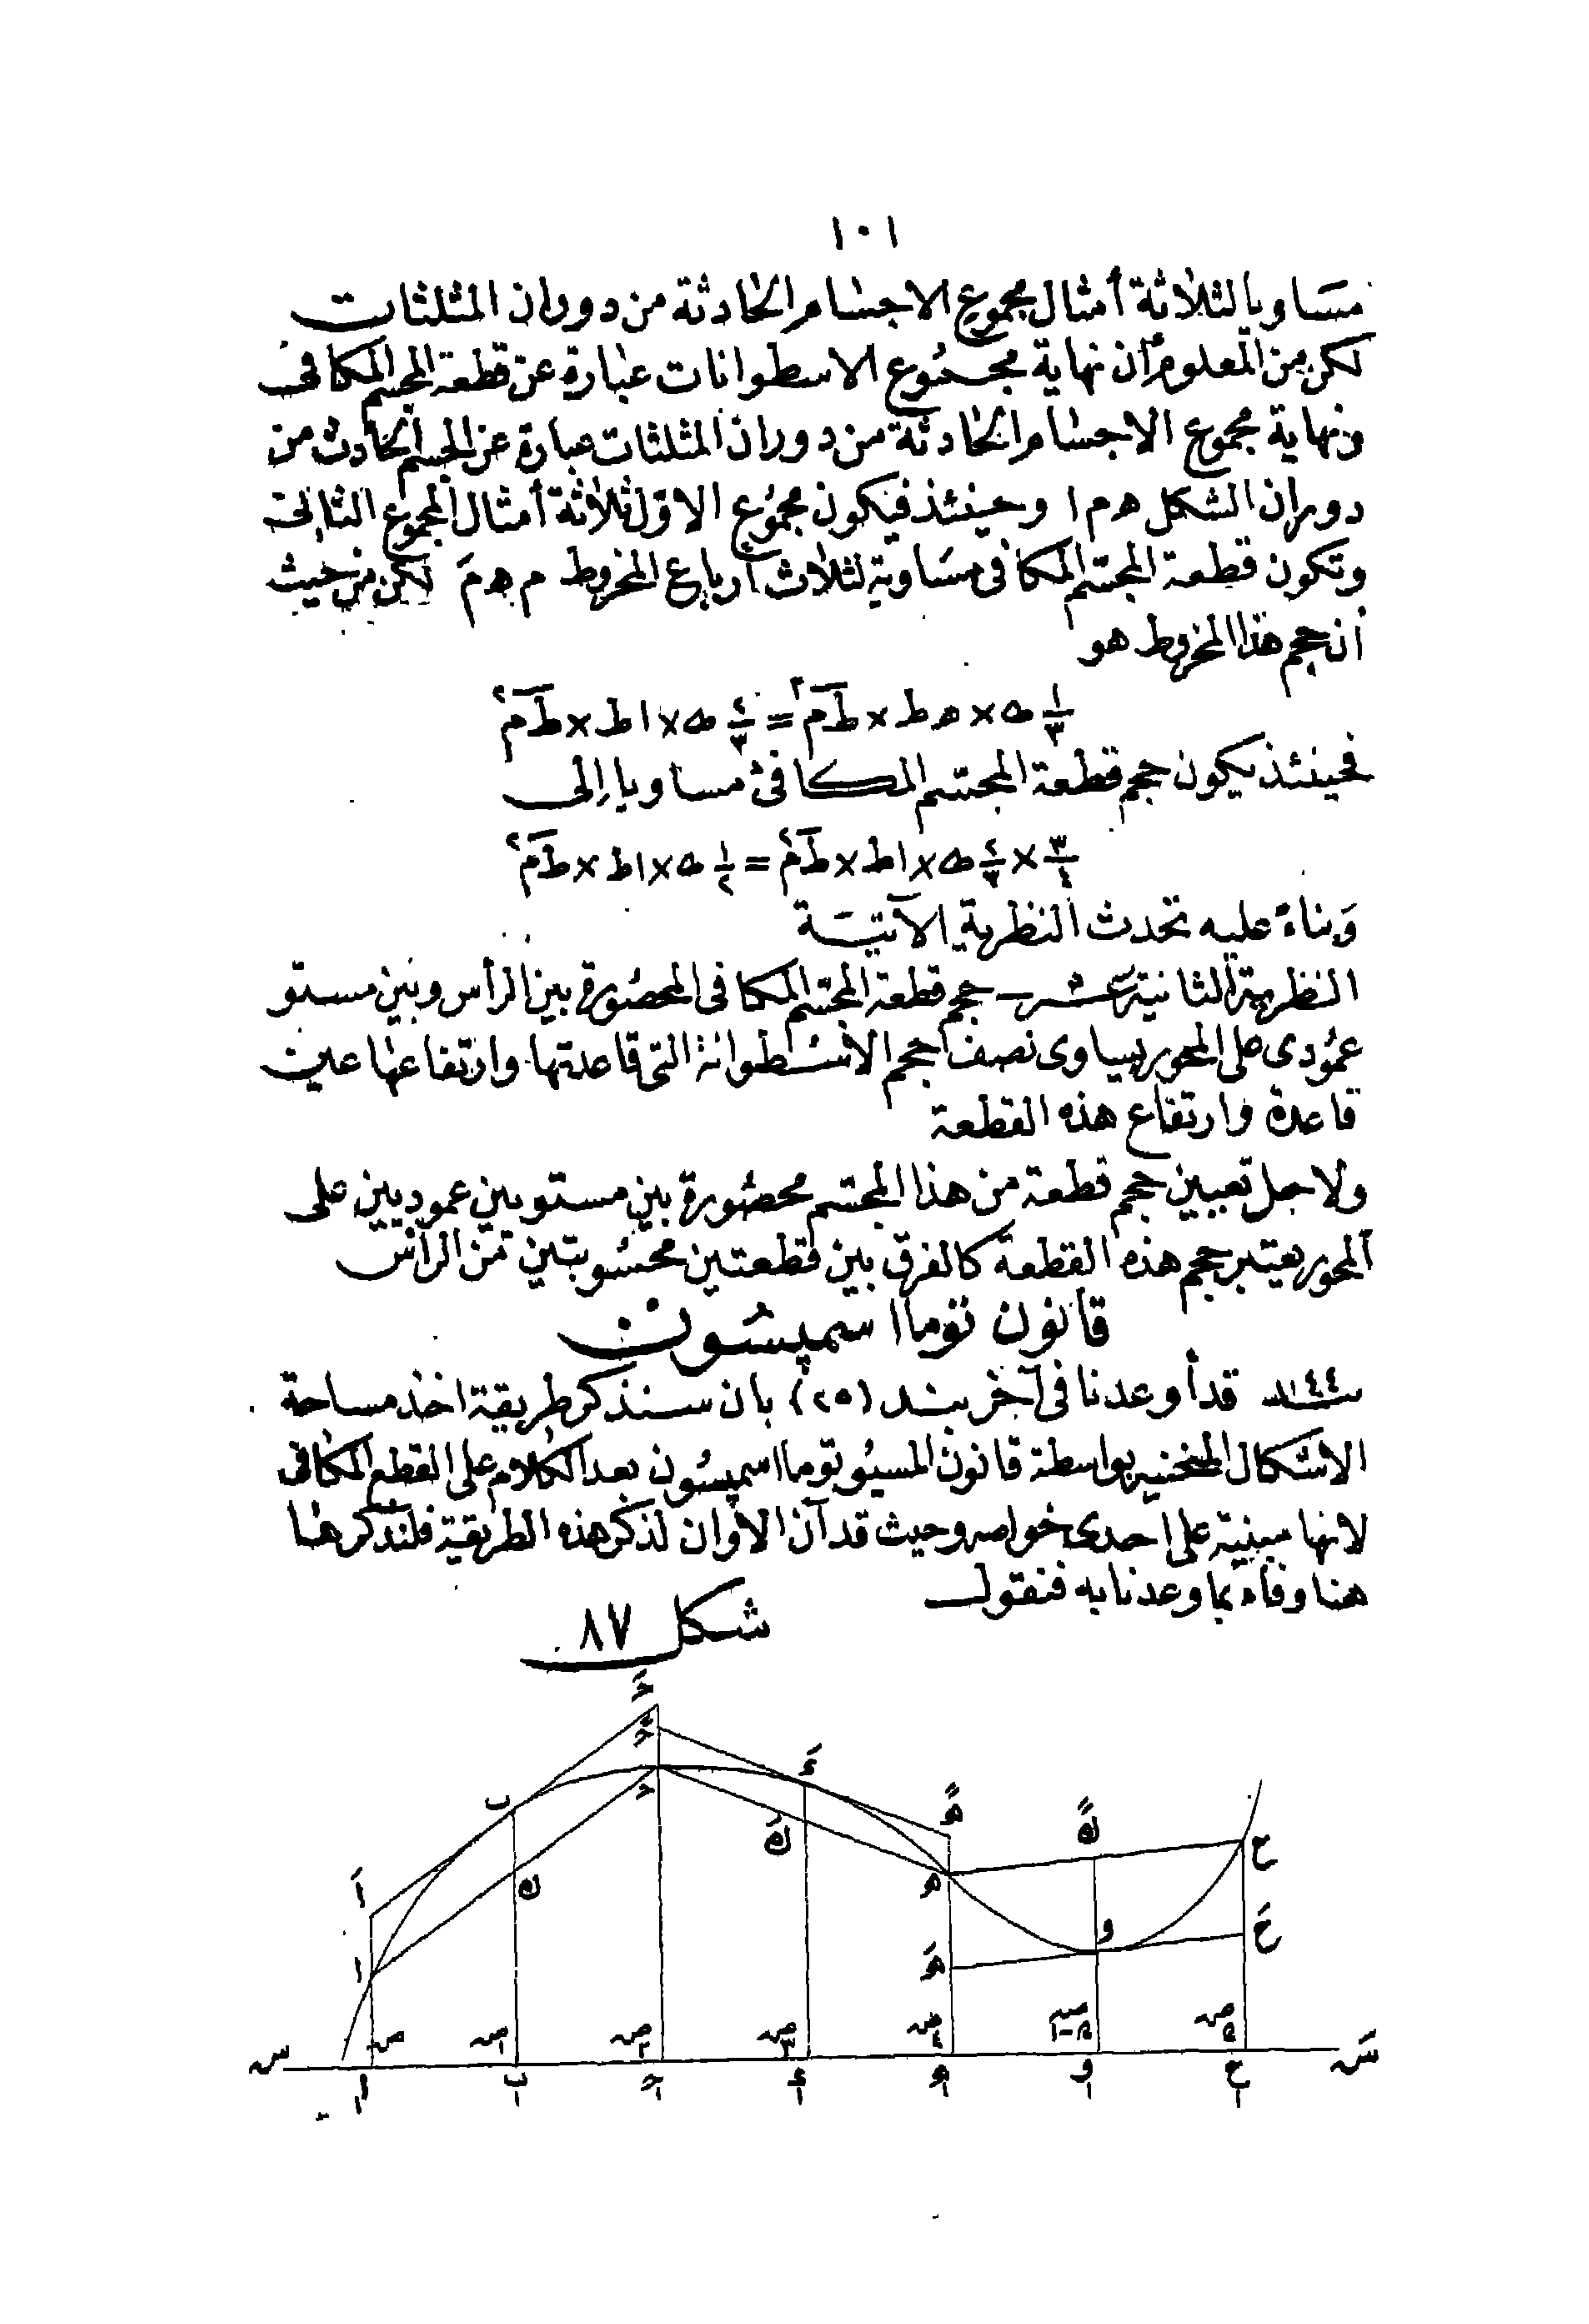 ١٠١
مساويا لثلاثة أمثال مجموع الاجسام الحادثة من دوران المثلثات
لكن من المعلوم أن نهاية مجموع الاسطوانات عبارة عن قطعة المجسم المكافى
ونهاية مجموع الاجسام الحادثة من دوران المثلثات عبارة عن الجسم الحادث من
دوران الشكل ه م ا وحينئذ فيكون مجموع الاول ثلاثة أمثال المجموع الثانى
وتكون قطعة المجسم المكافى مساوية لثلاث أرباع المخروط م ه مَ لكن من حيث
أن حجم هذا المخروط هو
١/٣ ط × ه ط × ط م٢ = ٢/٣ ط × ا ط × ط م٢
فحينئذ يكون حجم قطعة المجسم المكافئ مساويا الى
٣/٤ × ٢/٣ ط × ا ط × ط م٢ = ١/٢ ط × ا ط × ط م٢
وبناء عليه تحدث النظرية الآتية
النظرية الثانية عشر – حجم قطعة المجسم المكافى المحصورة بين الرأس وبين مستو
عمودى على المحور يساوى نصف حجم الاسطوانة التى قاعدتها وارتفاعها عين
قاعدة وارتفاع هذه القطعة
ولاجل تعيين حجم قطعة من هذا المجسم محصورة بين مستويين عموديين على
المحور يعتبر حجم هذه القطعة كالفرق بين قطعتين محسوبتين من الرأس
قانون توما اسمپسون
١٤٤ قد أوعدنا فى آخر بند (٢٥) بان سنذكر طريقة اخذ مساحة
الاشكال المنحنيه بواسطة قانون المسيو توما اسمپسون بعد الكلام على القطع المكافى
لانها مبنية على احدى خواصه وحيث قد آن الاوان لذكر هذه الطريقة فلنذكرها
هنا وفاء بما وعدنا به فنقول
شكل ٨٧
حً
حَ
ح
ءَ
ب
هً
كً
ك
كَ
اَ
ا
ه
هَ
و
ع
عَ
ص
ص١
ص٢
ص٣
ص٤
ص٥-١
ص٥
س
سَ
ا
ب
ح
ء
ه
و
ع